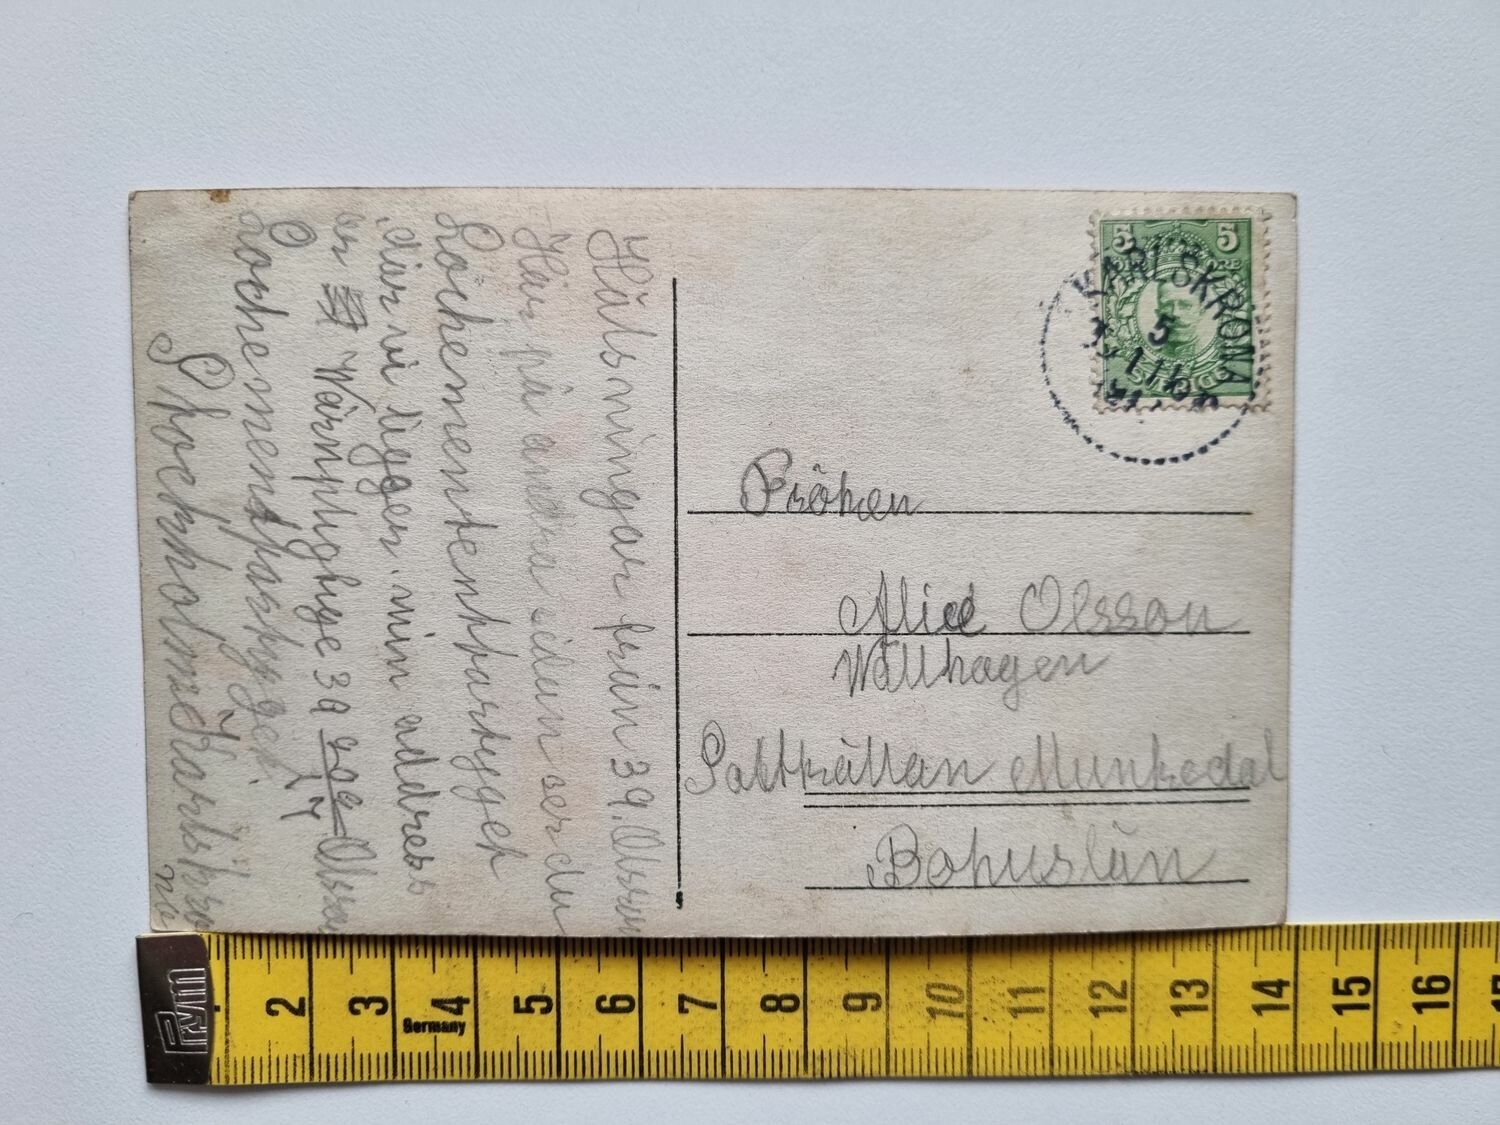 Hälsningar från 39. Olsson
Här på andra sidan ser du
Lockementenhpartyget
där vi ligger. min adress
är Wärnpligtige 39 Olsson
Lochementspartyget
Stockholm Karlskro
na
Fröken
Alice Olsson
Wällhagen
Saltkällan Munkedal
Bohuslän
5 5
ÖRE
SVERIGE
KARLSKRONA
5
11
Prym
2 3 4 5 6 7 8 9 10 11 12 13 14 15 16
Germany